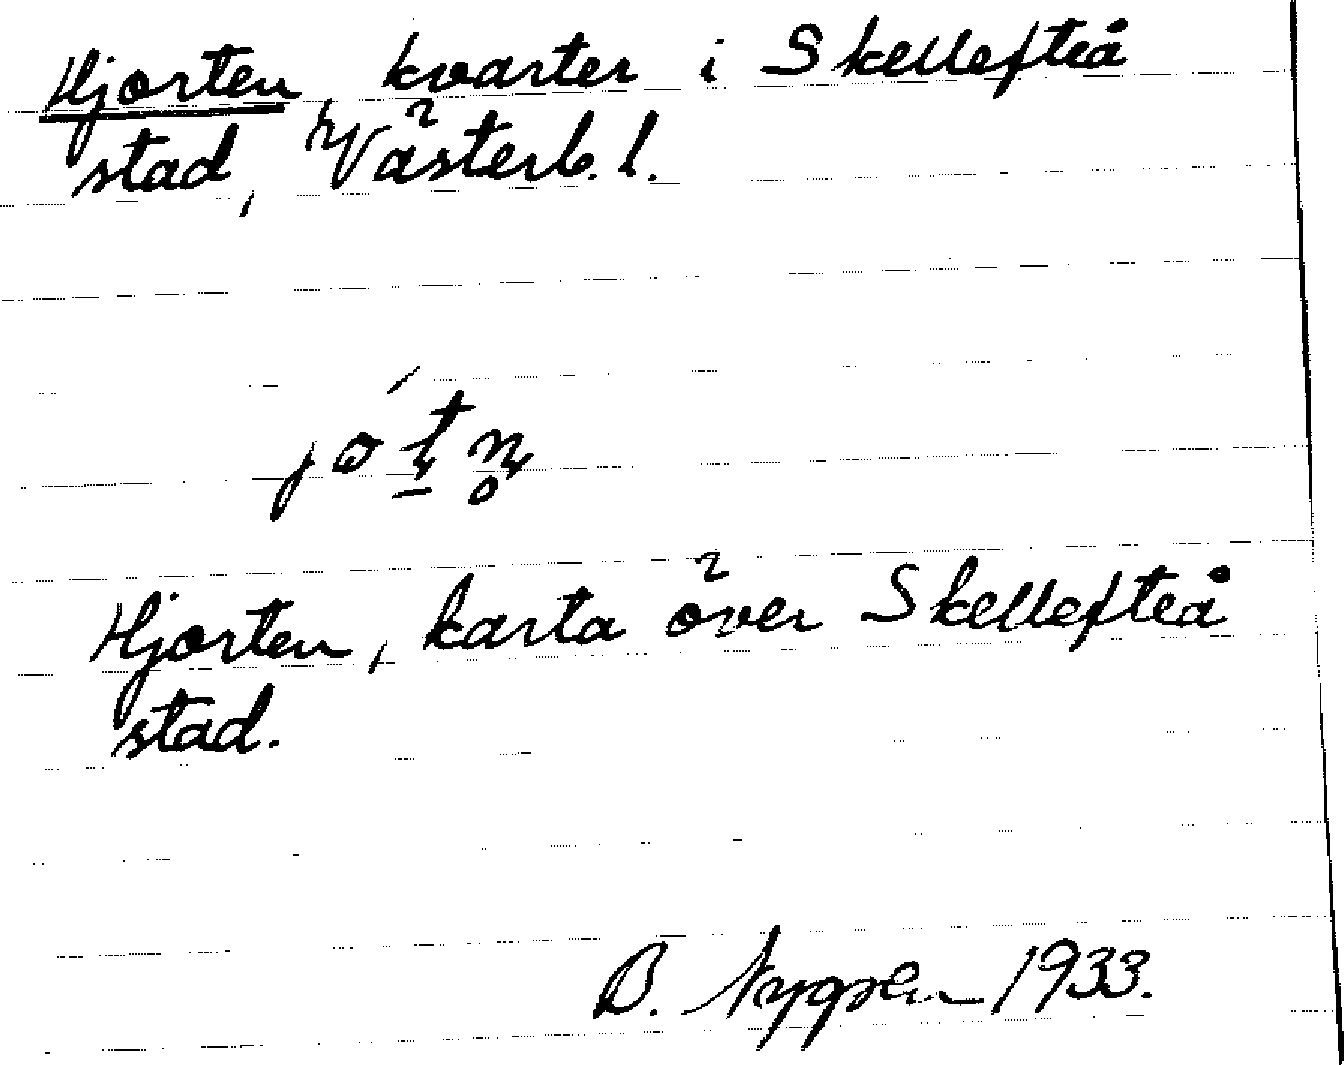 Hjorten, kvarter i Skellefteå
stad, Västerb. l.
Hjorten, karta över Skellefteå
stad.
B. Nygren 1933.